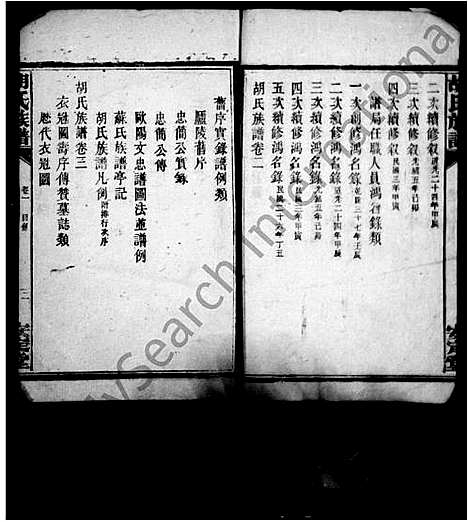 二次續修敘 道光二十四年甲辰
三次續修敘 光緒五年己卯
四次續修敘 民國三年甲寅
譜局任職人員鴻名錄類
一次創修鴻名錄 乾隆三十七年壬辰
二次續修鴻名錄 道光二十四年甲辰
三次續修鴻名錄 光緒五年己卯
四次續修鴻名錄 民國三年甲寅
五次續修鴻名錄 民國二十六年丁丑
胡氏族譜卷二
舊序實錄譜例類
廬陵舊序
忠簡公實錄
忠簡公傳
歐陽文忠譜圖法並譜例
蘇氏族譜亭記
胡氏族譜凡例 附排行次序
胡氏族譜卷三
衣冠圖壽序傳贊墓誌類
歷代衣冠圖
胡氏族譜
卷一
MySearch International